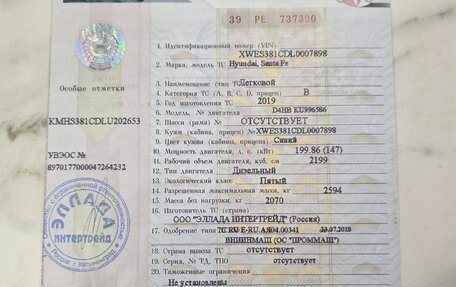 39 РЕ 737390
1. Идентификационный номер (VIN) XWES381CDL0007898
2. Марка, модель ТС Hyundai, Santa Fe
3. Наименование (тип ТС) Легковой
4. Категория ТС (A, B, C, D, прицеп) B
5. Год изготовления ТС 2019
6. Модель, № двигателя D4HB KU996586
7. Шасси (рама) № ОТСУТСТВУЕТ
8. Кузов (кабина, прицеп) № XWES381CDL0007898
9. Цвет кузова (кабины, прицепа) Синий
10. Мощность двигателя, л. с. (кВт) 199.86 (147)
11. Рабочий объем двигателя, куб. см 2199
12. Тип двигателя Дизельный
13. Экологический класс Пятый
14. Разрешенная максимальная масса, кг 2594
15. Масса без нагрузки, кг 2070
16. Изготовитель ТС (страна)
ООО "ЭЛЛАДА ИНТЕРТРЕЙД" (Россия)
17. Одобрение типа ТС RU E-RU.АЯ04.00341
ВНИИНМАШ (ОС "ПРОММАШ")
18. Страна вывоза ТС отсутствует
19. Серия, № ТД, ТПО отсутствует
20. Таможенные ограничения
Не установлены
Особые отметки
KMHS381CDLU202653
УВЭОС №
8970177000047264232
ЭЛЛАДА
ИНТЕРТРЕЙД